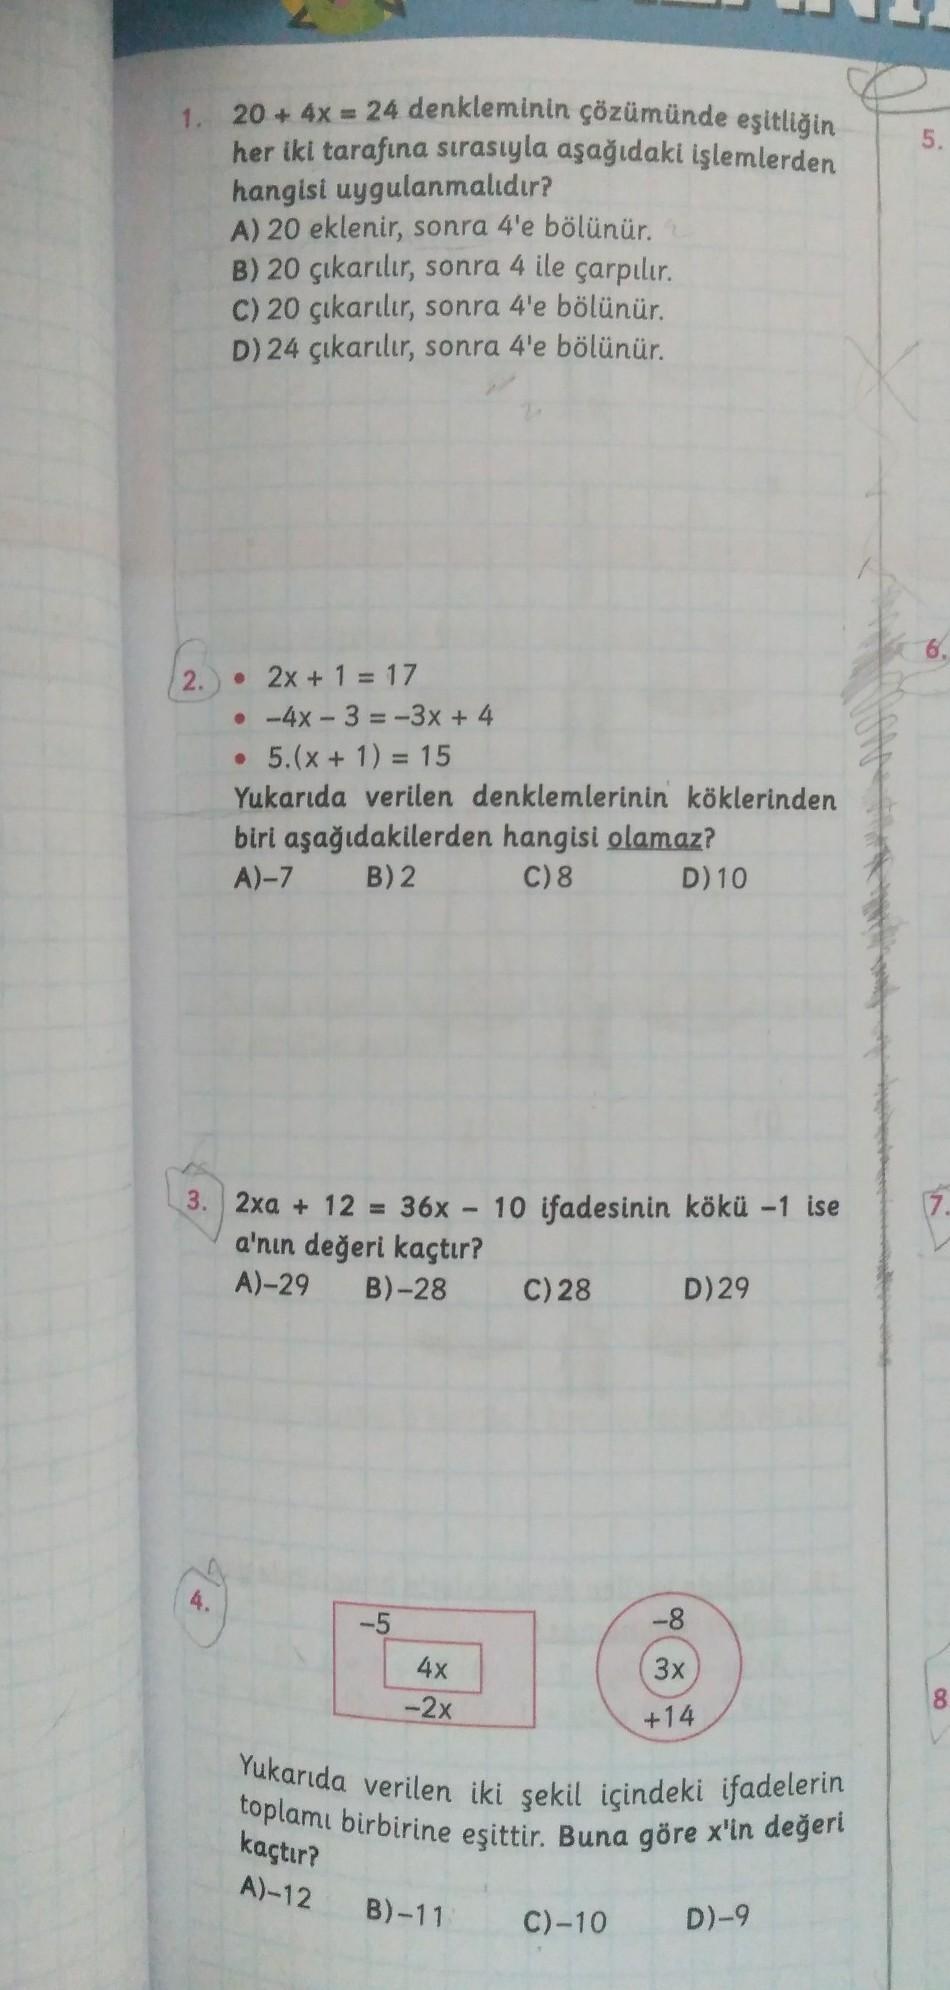 1. 20 + 4x = 24 denkleminin çözümünde eşitliğin
her iki tarafına sırasıyla aşağıdaki işlemlerden
hangisi uygulanmalıdır?
A) 20 eklenir, sonra 4'e bölünür.
B) 20 çıkarılır, sonra 4 ile çarpılır.
C) 20 çıkarılır, sonra 4'e bölünür.
D) 24 çıkarılır, sonra 4'e bölünür.
2. • 2x + 1 = 17
• –4x – 3 = –3x + 4
• 5.(x + 1) = 15
Yukarıda verilen denklemlerinin köklerinden
biri aşağıdakilerden hangisi olamaz?
A)–7 B) 2 C) 8 D) 10
3. 2xa + 12 = 36x – 10 ifadesinin kökü –1 ise
a'nın değeri kaçtır?
A)–29 B)–28 C) 28 D) 29
4.
–5
4x
–2x
–8
3x
+14
Yukarıda verilen iki şekil içindeki ifadelerin
toplamı birbirine eşittir. Buna göre x'in değeri
kaçtır?
A)–12 B)–11 C)–10 D)–9
5.
6.
7.
8